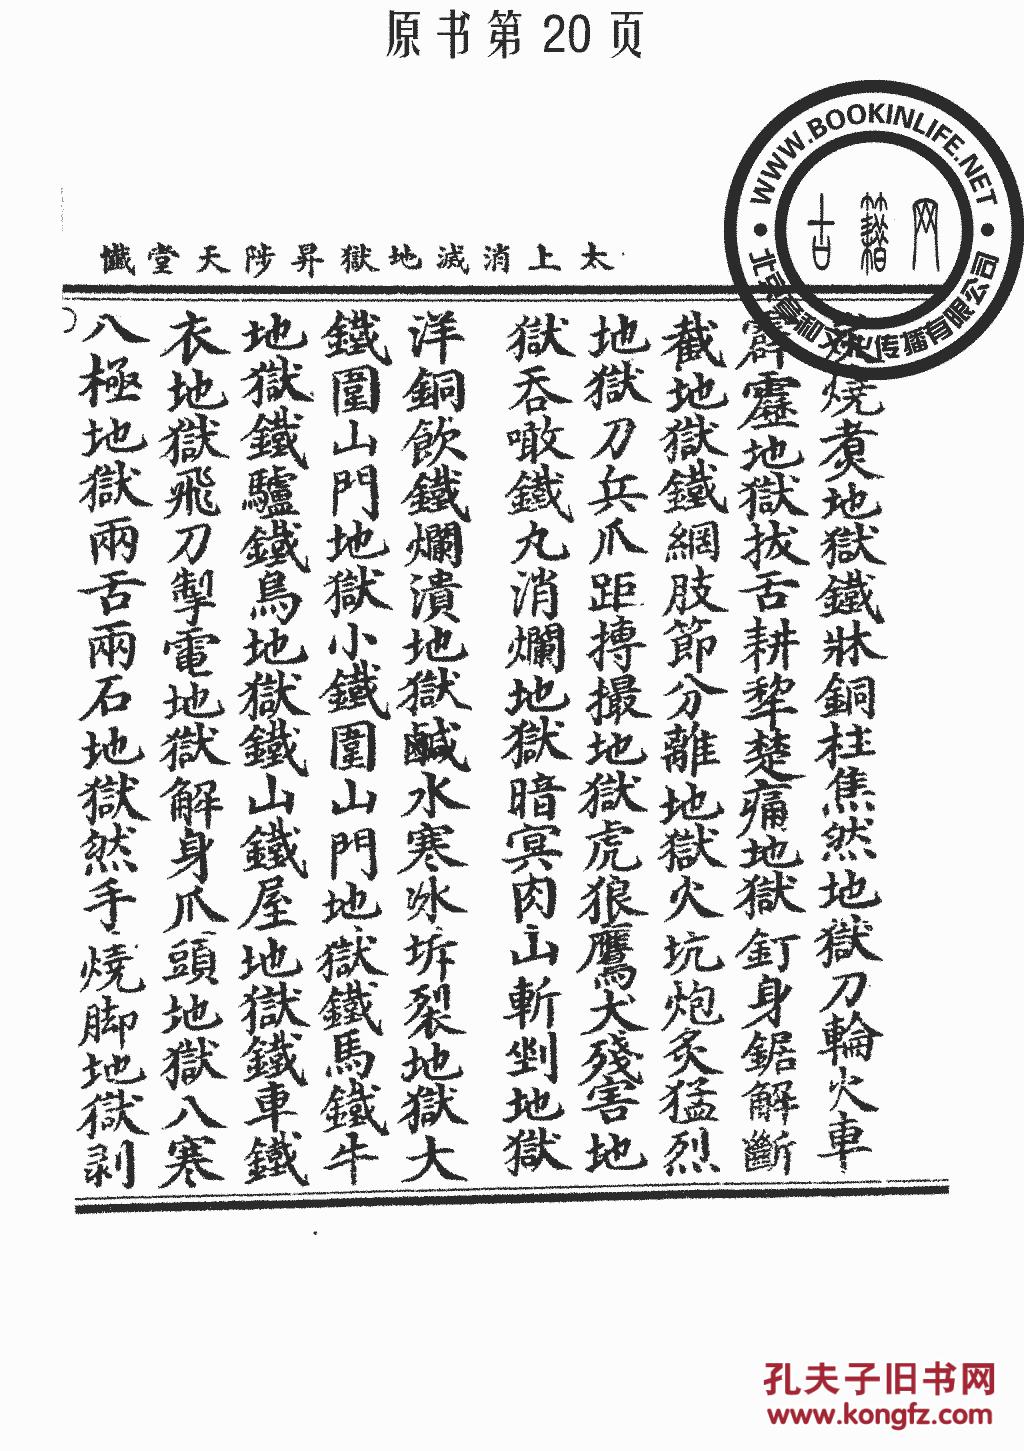 原书第20页
WWW.BOOKINLIFE.NET
古籍网
文化传播有限公司
太上消滅地獄昇陟天堂懺
燒煮地獄鐵牀銅柱焦然地獄刀輪火車
霹靂地獄拔舌耕犂楚痛地獄釘身鋸解斷
截地獄鐵網肢節分離地獄火坑炮炙猛烈
地獄刀兵爪距搏撮地獄虎狼鷹犬殘害地
獄吞噉鐵丸消爛地獄暗冥肉山斬剉地獄
洋銅飲鐵爛潰地獄鹹水寒冰坼裂地獄大
鐵圍山門地獄小鐵圍山門地獄鐵馬鐵牛
地獄鐵驢鐵鳥地獄鐵山鐵屋地獄鐵車鐵
衣地獄飛刀掣電地獄解身爪頭地獄八寒
八極地獄兩舌兩石地獄然手燒脚地獄剥
孔夫子旧书网
www.kongfz.com